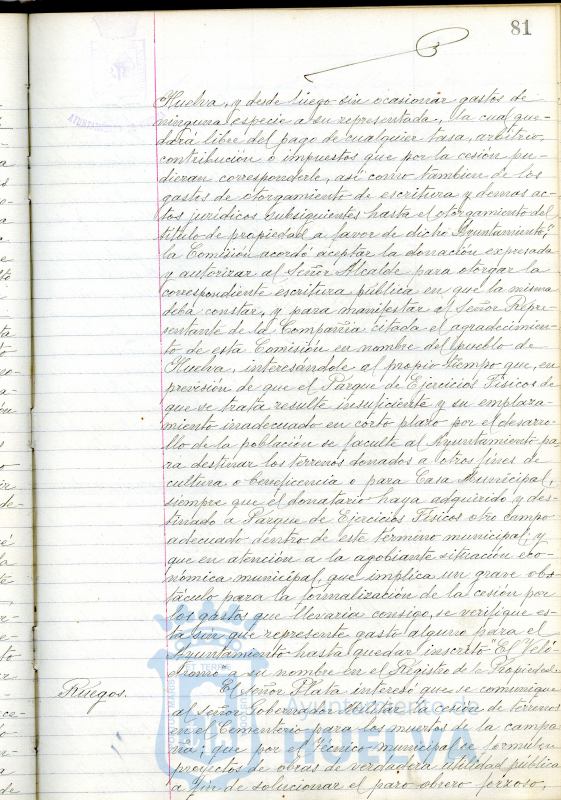 81
Huelva, y desde luego sin ocasionar gastos de
ninguna especie a su representada, la cual que-
dará libre del pago de cualquier tasa, arbitrio,
contribución o impuestos que por la cesión pu-
dieran corresponderle, así como tambien de los
gastos de otorgamiento de escritura y demas ac-
tos jurídicos subsiguientes hasta el otorgamiento del
título de propiedad a favor de dicho Ayuntamiento,"
la Comisión acordó aceptar la donación expresada
y autorizar al Señor Alcalde para otorgar la
correspondiente escritura pública en que la misma
debá constar, y para manifestar al Señor Repre-
sentante de la Compañía citada el agradecimien-
to de esta Comisión en nombre del pueblo de
Huelva, interesándole al propio tiempo que, en
previsión de que el Parque de Ejercicios Físicos de
que se trata resulte insuficiente y su emplaza-
miento inadecuado en corto plazo por el desarro-
llo de la población se faculte al Ayuntamiento pa
ra destinar los terrenos donados a otros fines de
cultura o beneficencia o para Casa Municipal,
siempre que el donatario haya adquirido y des-
tinado a Parque de Ejercicios Físicos otro campo
adecuado dentro de este término municipal, y
que en atención a la agobiante situación eco-
nómica municipal, que implica un grave obs-
táculo para la formalización de la cesión por
los gastos que llevaría consigo, se verifique es-
ta sin que represente gasto alguno para el
Ayuntamiento hasta quedar inscrito "El Veló-
dromo" a su nombre en el Registro de la Propiedad.
Ruegos. El Señor Plata interesó que se comunique
al Señor Gobernador Militar la cesión de terrenos
en el Cementerio para los muertos de la campa
ña; que por el Técnico municipal se formulen
proyectos de obras de verdadera utilidad pública
a fin de solucionar el paro obrero forzoso,